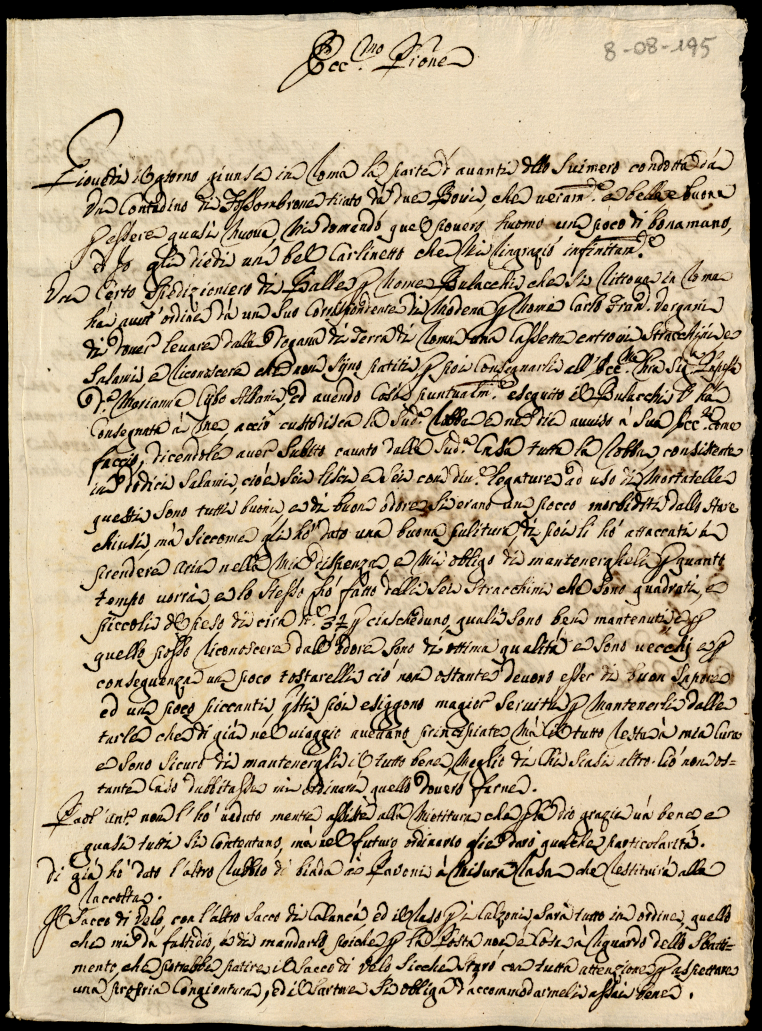 8-08-195
Ecc.mo P̃rone
Giovedì il giorno giunse in Roma la parte d'avanti dello Suimero condotta da
Un Contadino di Fossombrone tirato da due Bovi, che veram.e è bella e buona
p essere quasi nuova, Mi domandò quel povero huomo un poco di bonamano,
ed Io gli diedi un bel Carlinetto che Mi Ringraziò infinitam.e
Un Certo Spedizioniero di Balle p Nome Bulacchi che Si Ritrova in Roma
hà avut'ordine da un Suo Corrispondente di Modena p Nome Carlo Fran.o Vergani
di dover levare dalla Dogana di Terra di Roma una Cassetta entrovi Stracchini e
Salami e riconoscere che non sijno patiti p poi Consegnarli all'Ecc.ma Mia Sig.ra
D.a Marianna Cybo Albani, ed avendo Così puntualm.e eseguito il Bulacchi l'hà
Consegnata à me acciò custodisca la Sud.a Robba e ne dia avviso à Sua Ecc.za come
faccio, dicendole aver Subito cavato dalla Sud.a Cassa tutta la Robba consistente
in dodici Salami, cioè sei lisci e sei con legature ad uso di Mortatella
questi sono tutti buoni, e di buon odore si erano un pocco morbiditi dallo stare
chiusi, mà siccome gli hò dato una buona pulitura, di poi li hò attaccati à
prendere aria nella mia dispenza, e mi obligo di mantenerglieli p quanto
tempo vorrà, e lo stesso hò fatto delli sei Stracchini che sono quadrati, e
piccoli del peso di circa p ciascheduno, quali sono ben mantenuti e p
quello posso riconoscere dall'odore sono di ottima qualità e sono vecchj e p
conseguenza un poco tostarelli ciò non ostante devono esser di buon Sapore
ed un poco piccanti q.sti poi esiggono magior servitù p Mantenerli dalle
tarle che di già nel viaggio avevano principiate mà il tutto resta à mia Cura
e sono sicuro di mantenergli il tutto bene Meglio di chi siasi altro. Ciò non os=
tante Caso dubbitasse mi ordinarà quello doverò farne.
non l'hò veduto mentre assiste alla Mietitura che p Iddio grazia và bene e
quasi tutti si contentano, mà nel futuro ordinario glie darò qualche particolarità.
di già hò dato l'altro Rubbio di biada à Pavoni à Misura Rasa che restituirà alla
raccolta.
Il Sacco di Velo con l'altro Sacco di Calancà ed il Raso p i Calzoni, sarà tutto in ordine, quello
che mi dà fastidio, è di mandarlo poiche p la Posta non è Cosa à riguardo dello Sbatti=
mento, che potrebbe patire il Sacco di Velo sicche starò con tutta attenzione p aspettare
una propria Congiontura, ed il Sartore Si obliga d'accommodarmeli assai bene.